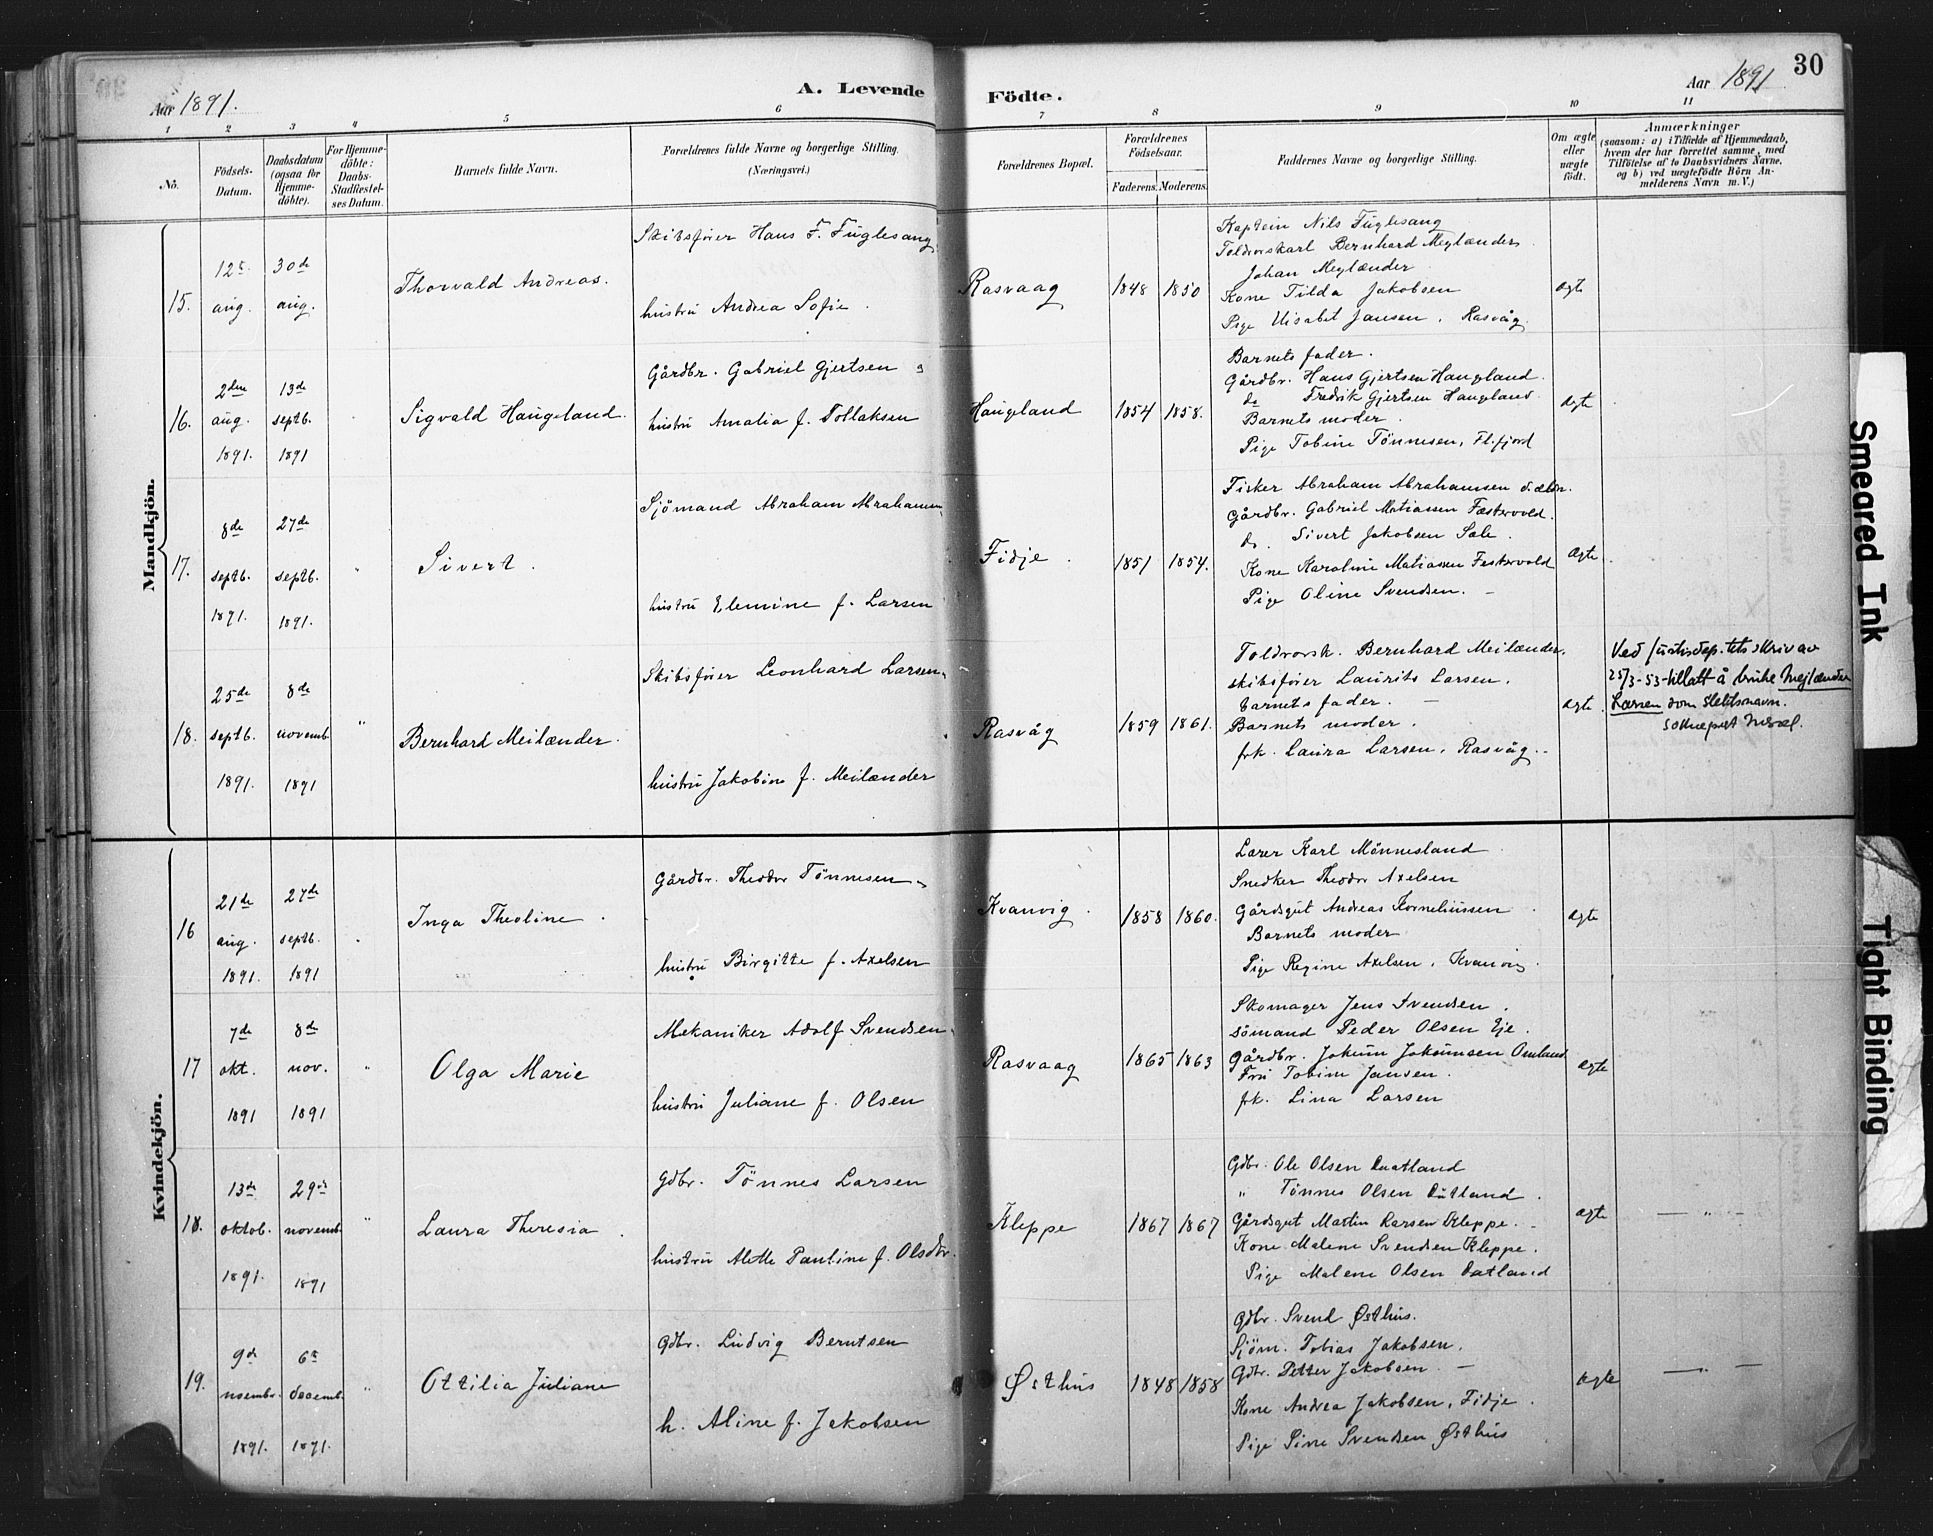 Aar 1891.
A. Levende
Födte.
Aar 1891
30
1 2 3 4 5 6 7 8 9 10 11
No.
Födsels-Datum.
Daabsdatum (ogsaa for Hjemmedöbte).
For Hjemmedöbte: Daabs-Stadfæstelses Datum.
Barnets fulde Navn.
Forældrenes fulde Navne og borgerlige Stilling.
(Næringsvei.)
Forældrenes Bopæl.
Forældrenes Födselsaar.
Faderens. Moderens.
Faddernes Navne og borgerlige Stilling.
Om ægte eller uægte födt.
Anmærkninger
(saasom: a) i Tilfælde af Hjemmedaab,
hvem der har forrettet samme, med
Tilföielse af to Daabsvidners Navne,
og b) ved uægtefödte Börn Anmelderens Navn m. V.)
Mandkjön.
15.
12te aug.
30de aug.
Thorvald Andreas.
Skibsfører Hans F. Fuglesang
hustru Andrea Sofie
Rasvaag
1848 1850
Kaptein Nils Fuglesang
Toldrorskarl Bernhard Meylænder.
Johan Meylænder
Kone Tilda Jakobsen
Pige Elisabet Jansen, Rasvåg.
ægte
16.
2den aug. 1891.
13de septb. 1891
Sigvald Haugeland.
Gårdbr. Gabriel Gjertsen
hustru Amalia f. Tollaksen
Haugeland
1854 1858.
Barnets fader.
Gårdbr. Hans Gjertsen Haugland.
do Fredrik Gjertsen Haugland
Barnets moder.
Pige Tobine Tönnesen, Flifjord
ægte
17.
8de septb. 1891.
27de septb. 1891.
"
Sivert.
Sjömand Abraham Abrahamsen
hustru Elemine f. Larsen
Fidje.
1851 1854.
Fisker Abraham Abrahamsen d. ældr.
Gårdbr. Gabriel Matiassen Fæstervold.
do. Sivert Jakobsen Sale.
Kone Karoline Matiassen Festervold
Pige Oline Svendsen. -
ægte
18.
25de septb. 1891.
8de novemb. 1891
"
Bernhard Meilænder.
Skibsfører Leonhard Larsen
hustru Jakobine f. Meilænder
Rasvåg
1859 1861.
Toldrorsk. Bernhard Meilænder.
skibsfører Laurits Larsen.
barnets fader. -
Barnets moder.
frk. Laura Larsen, Rasvåg.
ægte.
Ved justisdep-tets skriv av
25/3-53 tillatt å bruke Mejlænder
Larsen som slektsnavn.
Sokneprest
Kvindekjön.
16
21de aug. 1891.
27de septb. 1891
Inga Theoline.
Gårdbr. Theodor Tönnesen
hustru Birgitte f. Axelsen
Kvanvig.
1858 1860.
Lærer Karl Mönnesland
Snedker Theodor Axelsen
Gårdsgut Andreas Korneliussen
Barnets moder
Pige Regine Axelsen, Kvanvig
ægte
17
7de okt. 1891
8de nov. 1891
"
Olga Marie
Mekaniker Adolf Svendsen
hustru Juliane f. Olsen
Rasvaag
1865 1863
Skomager Jens Svendsen.
sömand Peder Olsen Eje.
Gårdbr. Jokum Jokumsen Omland
Fru Tobine Jansen.
frk. Lina Larsen
ægte
18.
13de oktob. 1891.
29de novemb. 1891
"
Laura Theresia.
Gdbr. Tönnes Larsen
hustru Alette Pauline f. Olsdtr.
Kleppe
1867 1867
Gdbr. Ole Olsen Datland
" Tönnes Olsen Datland.
Gårdsgut Martin Larsen Kleppe.
Kone Malene Svendsen Kleppe.
Pige Malene Olsen Datland
ægte
— " —
19.
9de novembr. 1891.
6te decemb. 1891.
"
Ottilia Juliane
Gdbr. Ludvig Berntsen
h. Aline f. Jakobsen
Østhus
1848 1858
Gdbr. Svend Østhus.
Sjöm. Tobias Jakobsen.
Gdbr. Petter Jakobsen. —
Kone Andrea Jakobsen, Fidje.
Pige Sine Svendsen Østhus
ægte
— " —
Smeared Ink
Tight Binding